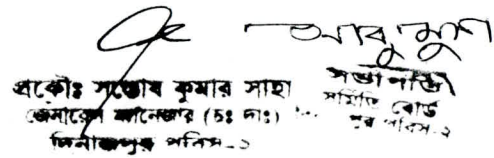 প্রকৌঃ সন্তোষ কুমার সাহা
জেনারেল ম্যানেজার (চঃ দাঃ)
দিনাজপুর পবিস-২
সভাপতি
সমিতি বোর্ড
পুর পবিস-২